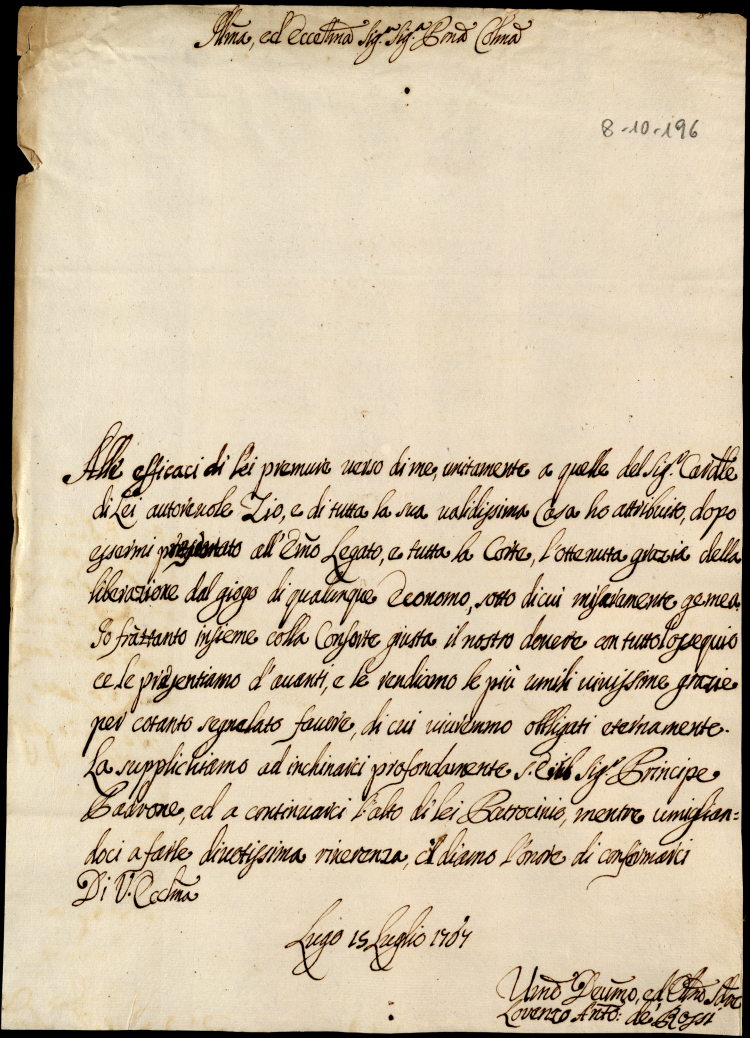 Illma, ed Eccellma Sig.ra Sig.ra Prona Colma
8-10-196
Alle efficaci di lei premure verso di me, unitamente a quelle del Sig.r Cavalre
di Lei autorevole Zio, e di tutta la sua validissima Casa ho attribuito, dopo
essermi presentato all'Emo Legato, e tutta la Corte, l'ottenuta grazia della
liberazione dal giogo di qualunque Economo, sotto di cui miseramente gemea.
Io frattanto insieme colla Consorte giusta il nostro dovere con tutto l'ossequio
ce le presentiamo d'avanti, e le rendiamo le più umili vivissime grazie
per cotanto segnalato favore, di cui viveremmo obbligati eternamente.
La supplichiamo ad inchinarci profondamente S. E. il Sig.r Principe
Padrone, ed a continuarci l'alto di lei Patrocinio, mentre umiglian=
doci a farle divotissima riverenza, ci diamo l'onore di confermarci
Di V. Eccllma
Lugo 15 Luglio 1767
Umo Devmo, ed
Lorenzo Anto: de Rossi